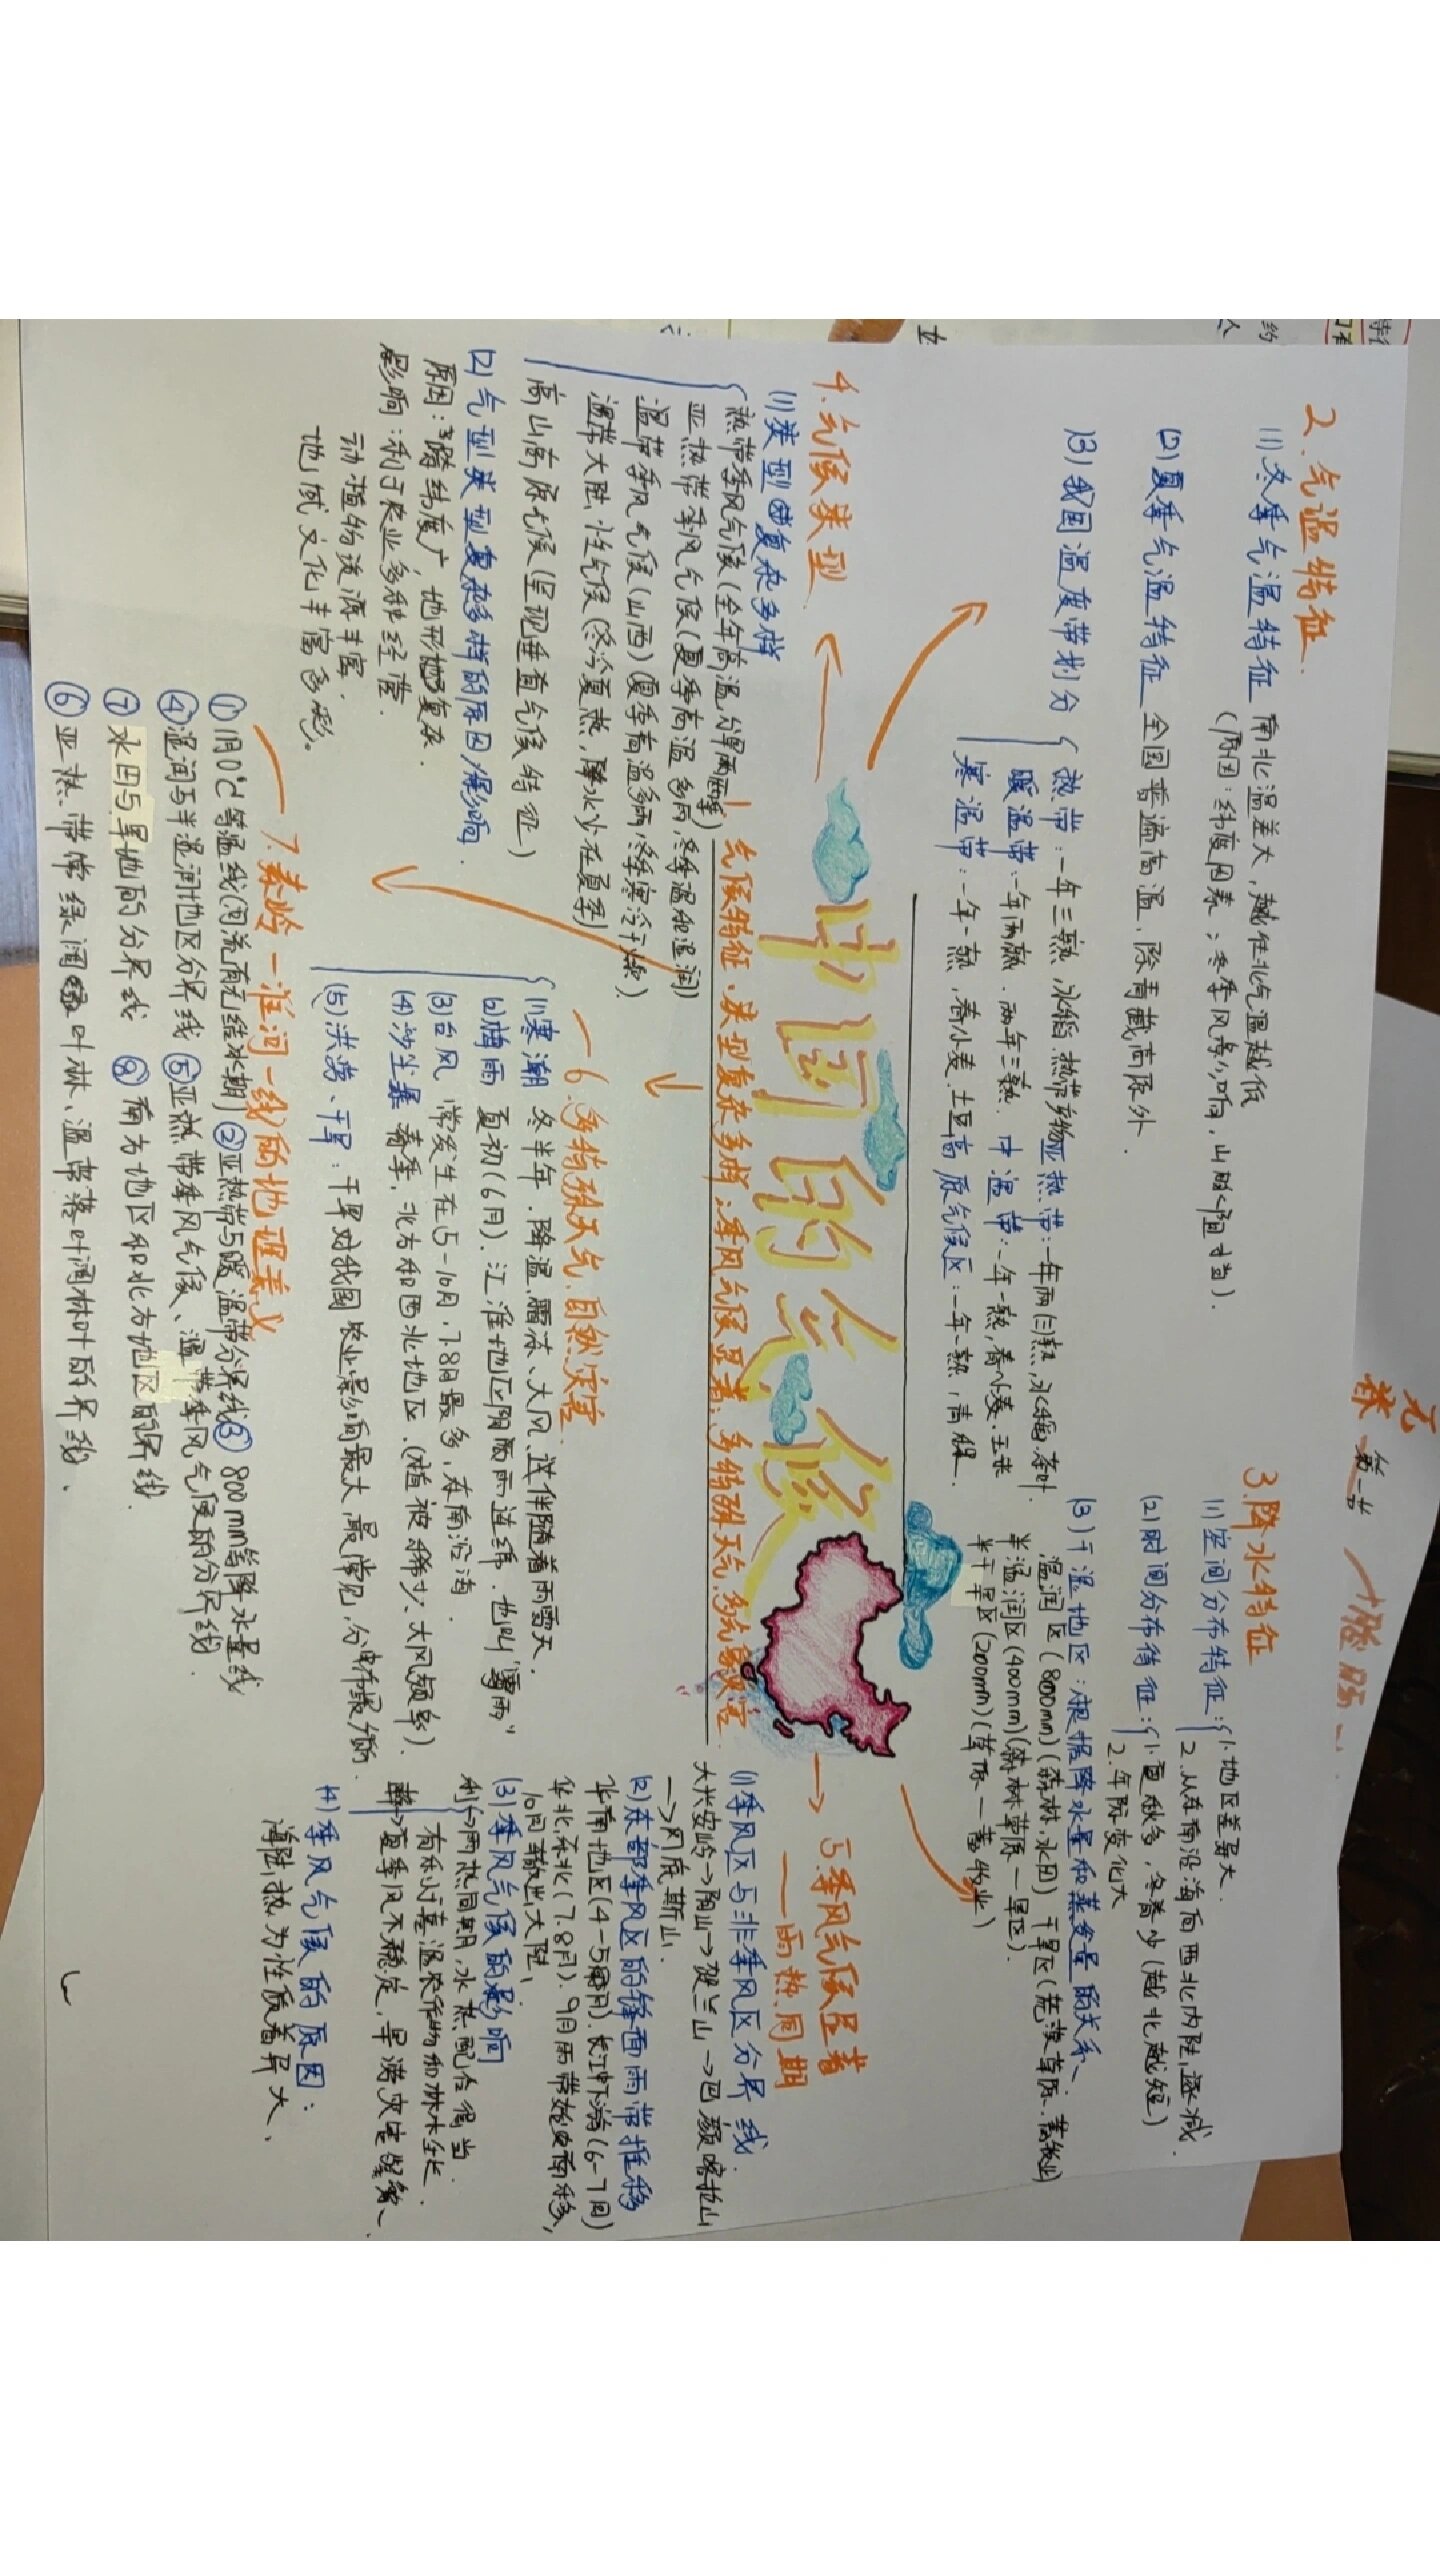 中国的气候
1.气候特征:类型复杂多样;季风气候显著、多特殊天气、多气象灾害
2.气温特征.
(1)冬季气温特征 南北温差大,越往北气温越低
(原因:纬度因素;冬季风影响,山脉阻挡).
(2)夏季气温特征 全国普遍高温,除青藏高原外.
(3)我国温度带划分
热带:一年三熟,水稻.热带作物 亚热带:一年两(三)熟,水稻.茶叶.
暖温带:一年两熟、两年三熟. 中温带:一年一熟,春小麦、玉米
寒温带:一年一熟,春小麦、土豆 高原气候区:一年一熟,青稞.
3.降水特征
(1)空间分布特征:1.地区差异大.
2.从东南沿海向西北内陆递减.
(2)时间分布特征:1.夏秋多,冬春少(越北越短)
2.年际变化大
(3)干湿地区:根据降水量和蒸发量的关系、
湿润区(800mm)(森林,水田) 干旱区(荒漠草原、畜牧业)
半湿润区(400mm)(森林草原—旱区).
半干旱区(200mm)(草原—畜牧业)
4.气候类型
(1)类型复杂多样
热带季风气候(全年高温,分旱雨两季)
亚热带季风气候(夏季高温多雨,冬季温和湿润)
温带季风气候(山西)(夏季高温多雨,冬季寒冷干燥).
温带大陆性气候(冬冷夏热,降水少在夏季)
高山高原气候(呈现垂直气候特征)
(2)气型类型复杂多样的原因/影响.
原因:跨纬度广,地形复杂
影响:利于农业多种经营.
动植物资源丰富.
地域文化丰富多彩。
5.季风气候显著
——雨热同期
(1)季风区与非季风区分界线.
大兴安岭→阴山→贺兰山→巴颜喀拉山
→冈底斯山.
(2)东部季风区的锋面雨带推移
华南地区(4-5月).长江中下游(6-7月)
华北.东北(7.8月).9月雨带始南移,
10月撤出大陆、
(3)季风气候的影响
利→雨热同期,水热配合得当.
有利于喜温农作物和林木生长.
弊→夏季风不稳定,旱涝灾害频繁、
(4)季风气候的原因:
海陆热力性质差异大、
6.多特殊天气.自然灾害
(1)寒潮 冬半年.降温,霜冻、大风、还伴随着雨雪天.
(2)梅雨 夏初(6月).江淮地区阴雨连绵.也叫"霉雨"
(3)台风 常发生在(5-10月,7.8月最多,东南沿海.
(4)沙尘暴 春季,北方和西北地区.(植被稀少、大风频率).
(5)洪涝、干旱:干旱对我国农业影响最大,最常见,分布最广
7.秦岭—淮河一线的地理意义
①1月0℃等温线(河流有无结冰期)②亚热带与暖温带分界线③800mm等降水量线
④湿润与半湿润地区分界线 ⑤亚热带季风气候、温带季风气候的分界线.
⑦水田与旱地的分界线 ⑧南方地区和北方地区的界线.
⑥亚热带常绿阔叶林、温带落叶阔林叶的界线.
第一节